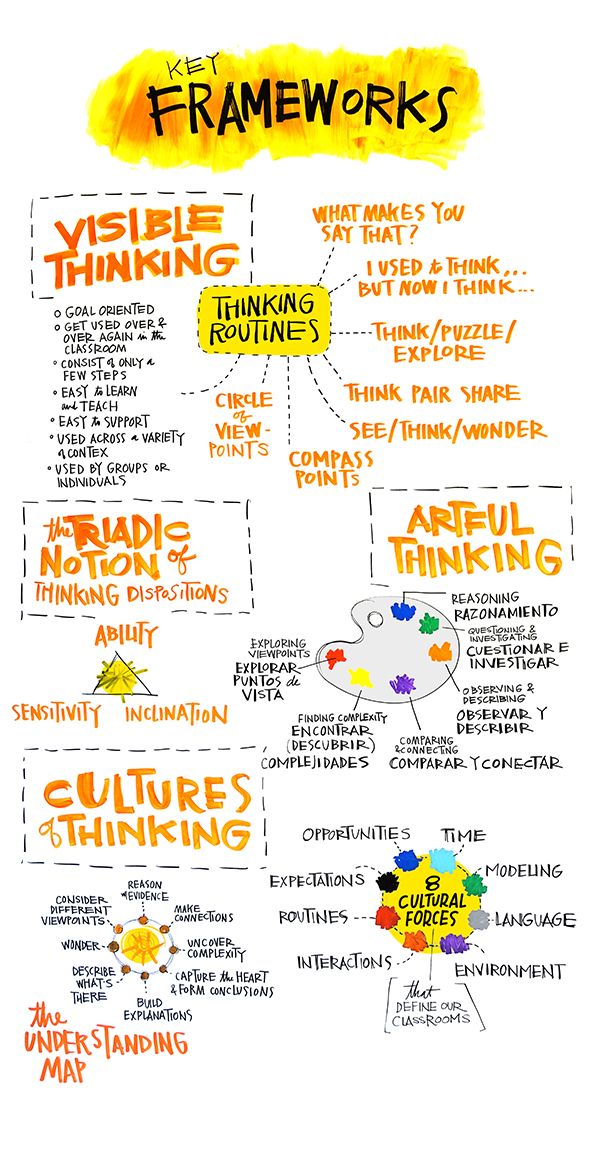 KEY
FRAMEWORKS
VISIBLE
THINKING
GOAL ORIENTED
GET USED OVER &
OVER AGAIN in the
CLASSROOM
CONSIST of ONLY a
FEW STEPS
EASY to LEARN
and TEACH
EASY to SUPPORT
USED ACROSS a VARIETY
of CONTEX
USED BY GROUPS OR
INDIVIDUALS
THINKING
ROUTINES
WHAT MAKES YOU
SAY THAT?
I USED to THINK...
BUT NOW I THINK...
THINK/PUZZLE/
EXPLORE
THINK PAIR SHARE
SEE/THINK/WONDER
COMPASS
POINTS
CIRCLE
of
VIEW-
POINTS
the TRIADIC
NOTION of
THINKING DISPOSITIONS
ABILITY
SENSITIVITY INCLINATION
ARTFUL
THINKING
REASONING
RAZONAMIENTO
QUESTIONING &
INVESTIGATING
CUESTIONAR E
INVESTIGAR
OBSERVING &
DESCRIBING
OBSERVAR Y
DESCRIBIR
COMPARING
& CONNECTING
COMPARAR Y CONECTAR
FINDING COMPLEXITY
ENCONTRAR
(DESCUBRIR)
COMPLEJIDADES
EXPLORING
VIEWPOINTS
EXPLORAR
PUNTOS de
VISTA
CULTURES
of THINKING
REASON
w EVIDENCE
MAKE
CONNECTIONS
UNCOVER
COMPLEXITY
CAPTURE the HEART
& FORM CONCLUSIONS
BUILD
EXPLANATIONS
DESCRIBE
WHAT'S
THERE
WONDER
CONSIDER
DIFFERENT
VIEWPOINTS
the
UNDERSTANDING
MAP
8
CULTURAL
FORCES
that
DEFINE OUR
CLASSROOMS
TIME
MODELING
LANGUAGE
ENVIRONMENT
INTERACTIONS
ROUTINES
EXPECTATIONS
OPPORTUNITIES